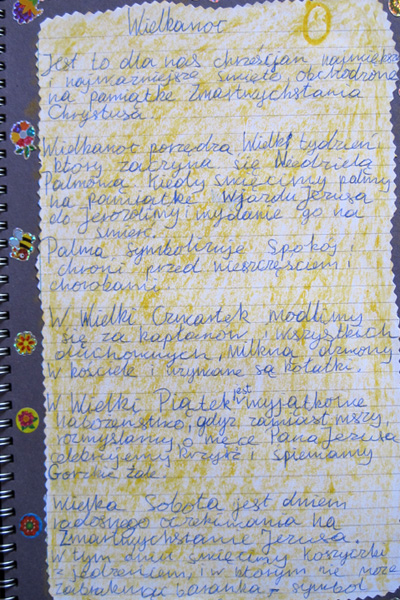 Wielkanoc
Jest to dla nas chrześcjan, największe
i najważniejsze święto, obchodzone
na pamiątkę Zmartwychstania
Chrystusa.
Wielkanoc poprzedza Wielki tydzień
który zaczyna się Niedzielą
Palmową. Kiedy święcimy palmy
na pamiątkę Wjazdu Jezusa
do Jerozolimy i wydanie go na
śmierć.
Palma symbolizuje spokój i
chroni przed nieszczęściem i
chorobami.
W Wielki Czwartek modlimy
się za kapłanów i wszystkich
duchownych, milkną dzwony
w kościele i używane są kołatki.
W Wielki Piątek jest wyjątkowe
nabożeństwo, gdyż zamiast mszy,
rozmyślamy o męce Pana Jezusa
celebrujemy krzyż i śpiewamy
Gorzkie Żale.
Wielka Sobota jest dniem
radosnego oczekiwania na
Zmartwychstanie Jezusa.
W tym dniu święcimy koszyczki
z jedzeniem, i w którym nie może
zabraknąć baranka - symbol